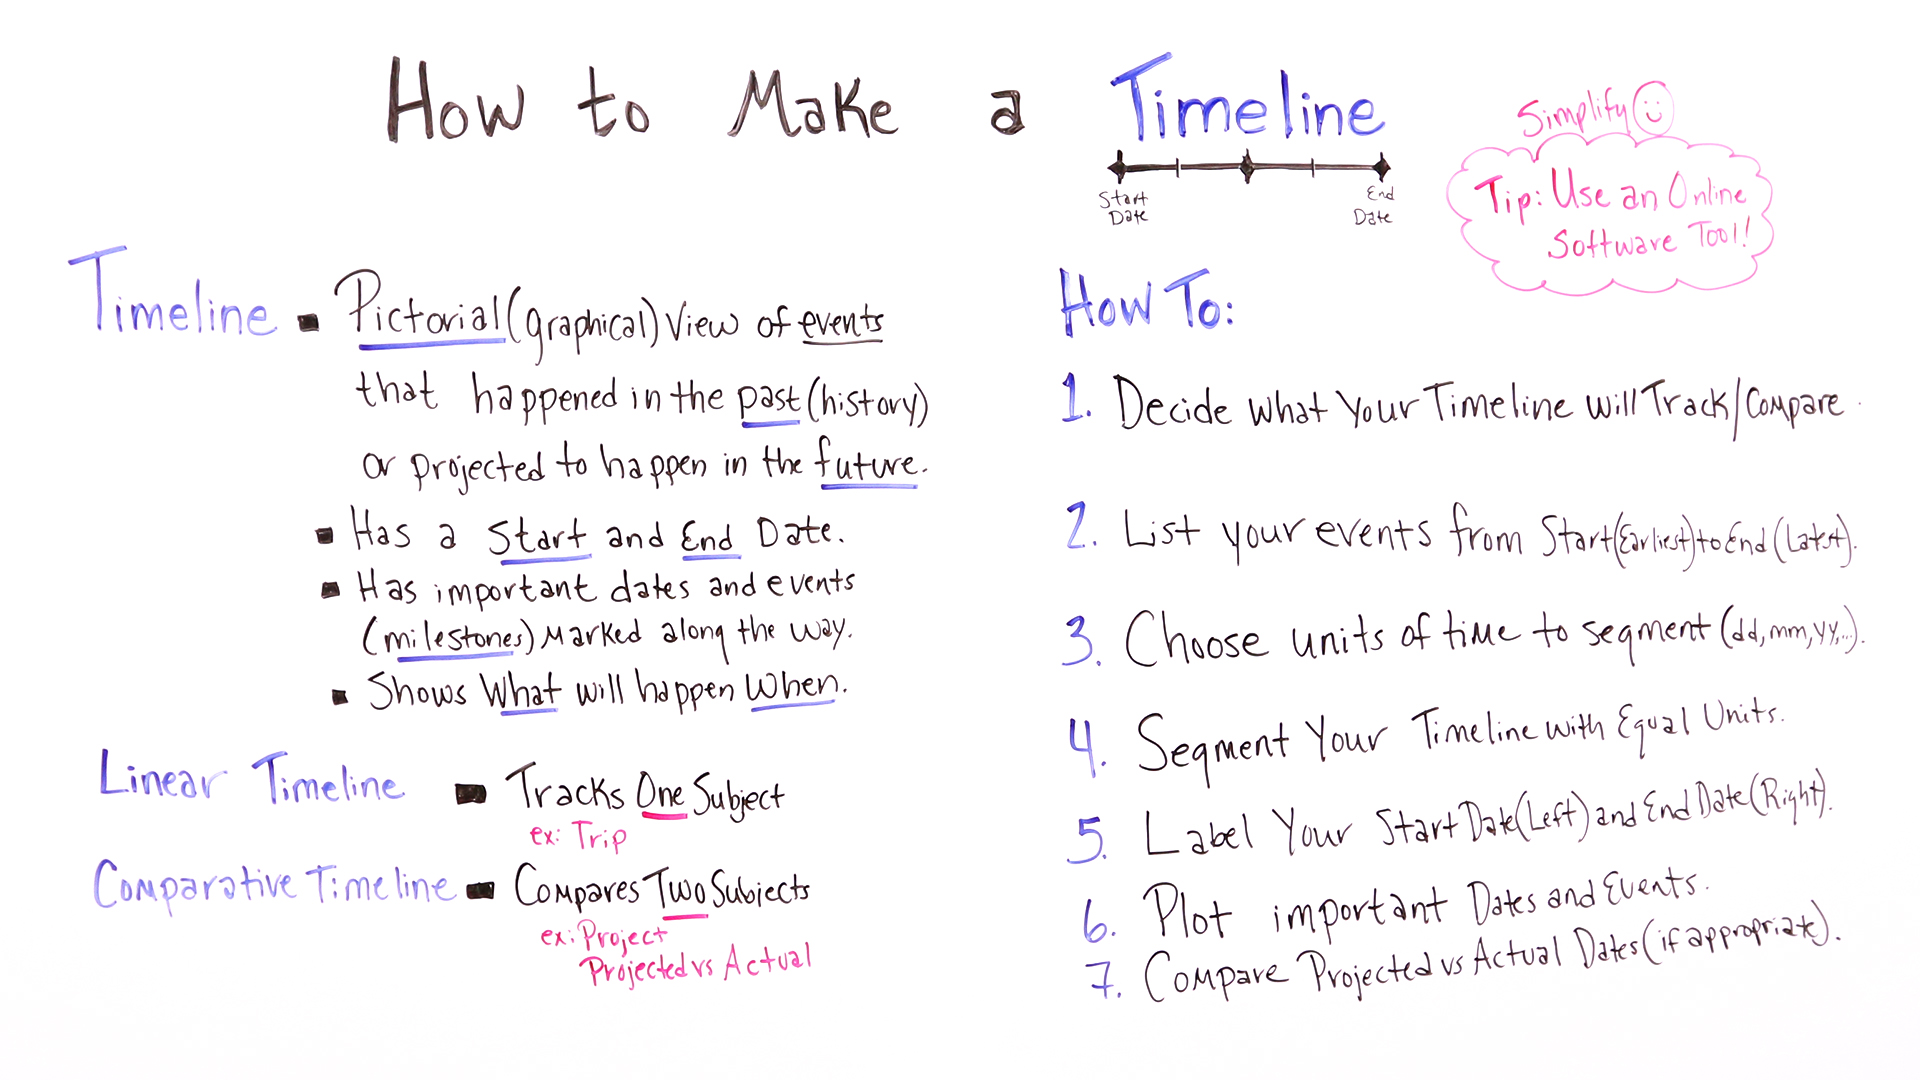 How to Make a Timeline
Start Date
End Date
Simplify
Tip: Use an Online
Software Tool!
Timeline - Pictorial (graphical) View of events
that happened in the past (history)
or projected to happen in the future.
▪ Has a Start and End Date.
▪ Has important dates and events
(milestones) Marked along the way.
▪ Shows What will happen When.
Linear Timeline - Tracks One Subject
ex: Trip
Comparative Timeline - Compares Two Subjects
ex: Project
Projected vs Actual
How To:
1. Decide what Your Timeline will Track/Compare
2. List your events from Start (Earliest) to End (Latest).
3. Choose units of time to segment (dd, mm, yy, ...).
4. Segment Your Timeline with Equal Units.
5. Label Your Start Date (Left) and End Date (Right).
6. Plot important Dates and Events.
7. Compare Projected vs Actual Dates (if appropriate).